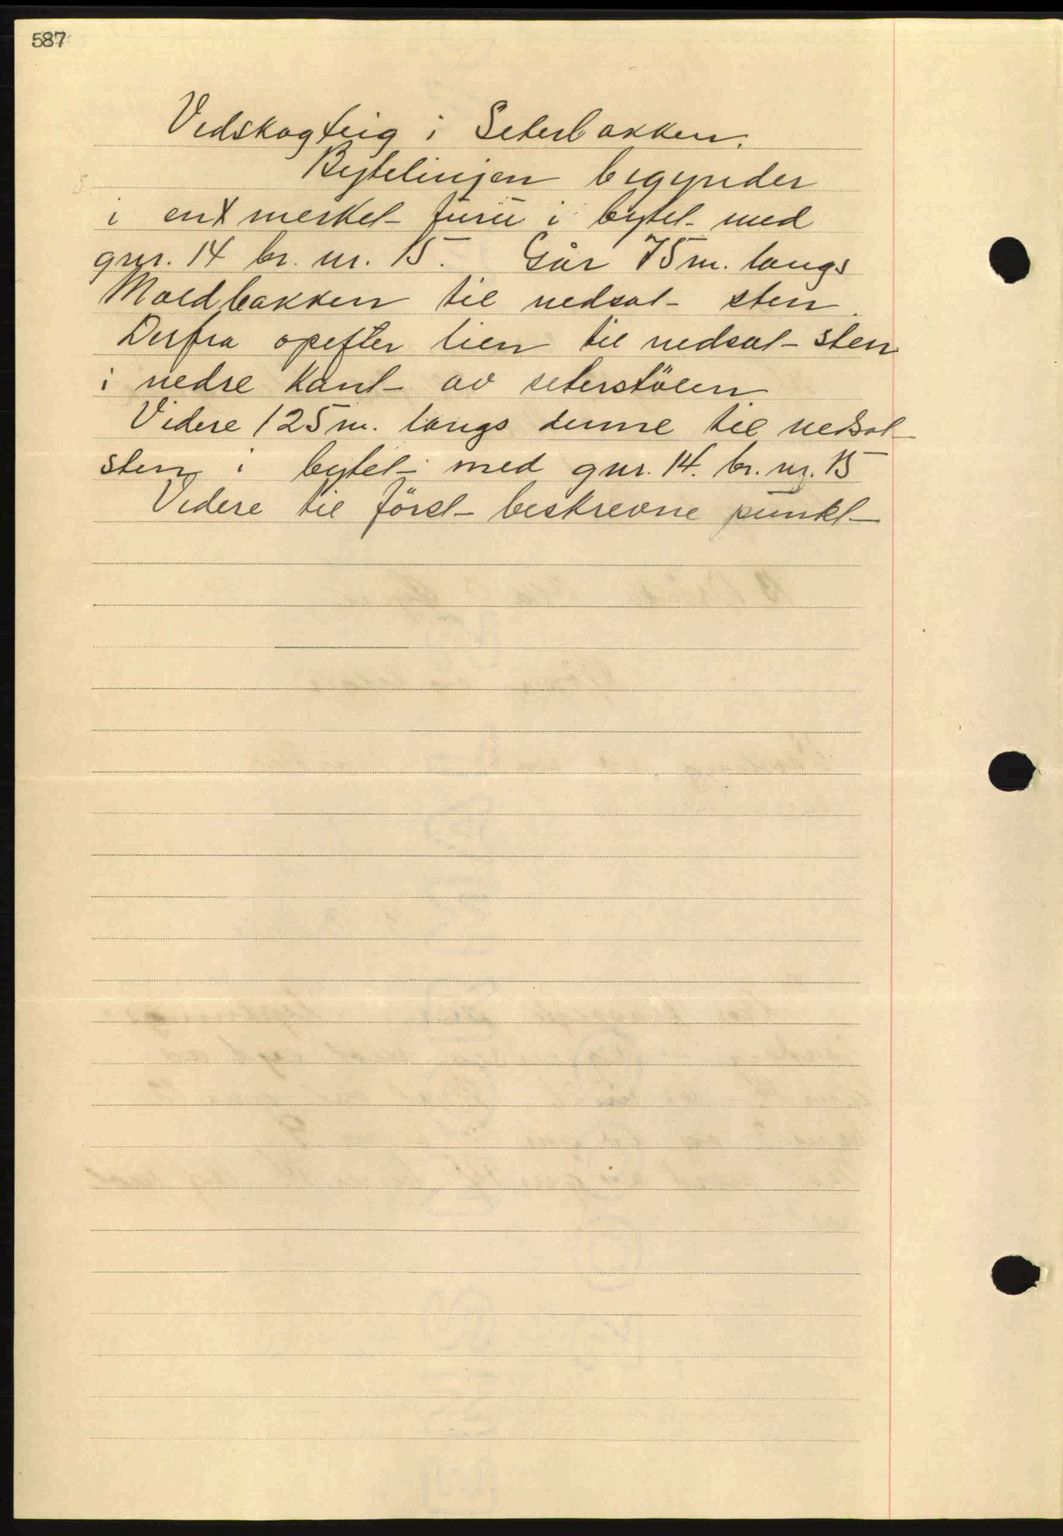 587
Vedskogteig i Seterbakken.
Bytelinjen begynder
i en X merket furu i bytet med
gnr. 14 br. nr. 15. Går 75 m. langs
Moldbakken til nedsat sten.
Derfra opefter lien til nedsat sten
i nedre kant av seterstölen
Videre 125 m. langs denne til nedsat
sten i bytet med gnr. 14. br. nr. 15
Videre til först beskrevne punkt